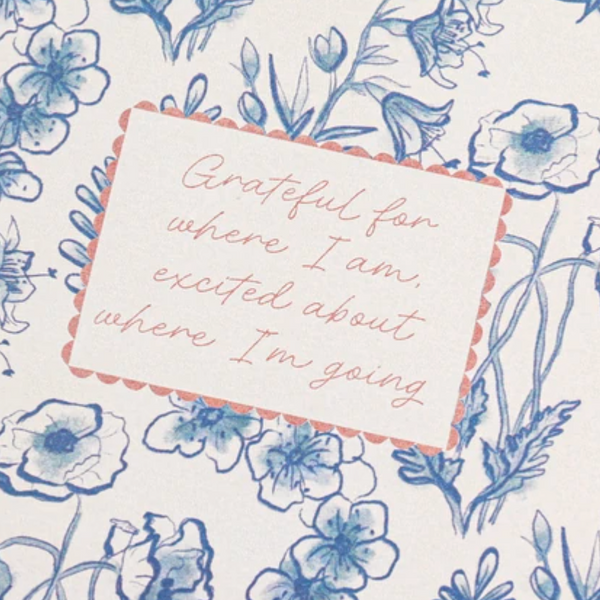 Grateful for
where I am,
excited about
where I'm going